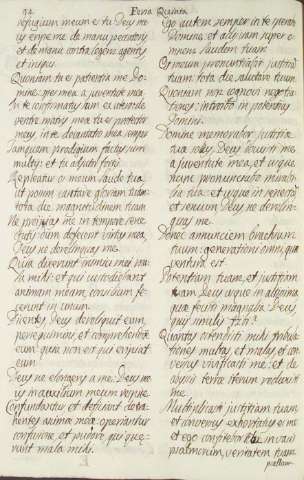 92
Feria Quinta
refugium meum es tu Deus me
us eripe me de manu peccatoris
et de manu contra legem agentis
et iniqui
Quoniam tu es patientia mea Do
mine: spes mea a juventute mea
In te confirmatus sum ex utero: de
ventre matris mea tu es protector
meus, in te decantatio mea semper
Tanquam prodigium factus sum
multis: et tu adjutor fortis
Repleatur os meum laude tua
ut possim cantare gloriam tuam
tota die magnitudinem tuam
Ne projicias me in tempore sene
ctutis: dum defecerit virtus mea,
Deus ne derelinquas me.
Quia dixerunt inimici mei
mihi: et qui custodiebant
animam meam, consilium fe
cerunt in unum.
Dicentes, Deus dereliquit eum,
persequimini, et comprehendite
eum quia non est qui eripiat
eum
Deus ne elongeris a me: Deus me
us in auxilium meum respice.
Confundantur et deficiant detra
hentes anima mea: operiantur
confusione, et pudore, qui quæ
runt mala mihi.
Ego autem semper in te spera
Domine, et adjiciam super o
mnem laudem tuam.
Os meum pronuntiabit justitia
tuam tota die salutare tuum.
Quoniam non cognovi negotia
tiones, introibo in potentias
Domini.
Domine memorabor justitiæ
tua solius Deus docuisti me
a juventute mea, et usque
nunc pronunciabo mirabi
lia tua. et usque in senecta
et senium, Deus ne derelin
quas me.
Donec annunciem brachium
tuum: generationi omni, qua
ventura est.
Potentiam tuam, et justitiam
tuam Deus usque in altissima
qua fecisti magnalia: Deus
quis similis tibi?
Quantas ostendisti mihi tribula
tiones multas, et malas, et con
versus vivificasti me, et de
abyssis terræ iterum reduxisti
me.
Multiplicasti justitiam tuam:
et conversus exhortatus es me
et ego confitebor tibi in vasis
psalmorum, veritatem tuam
psallam